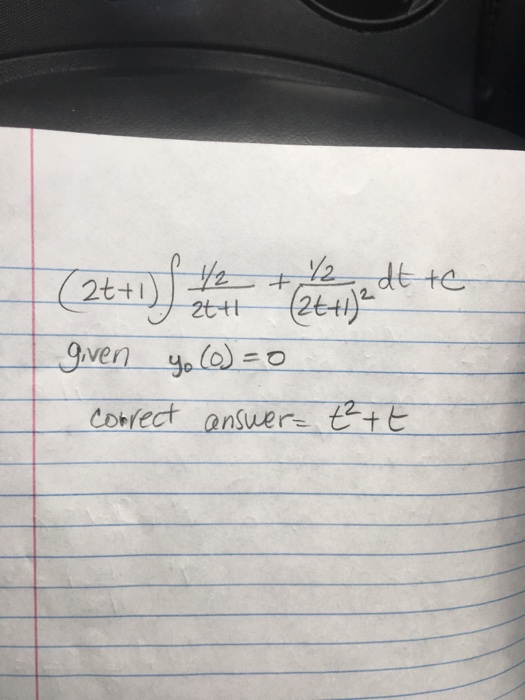 (2t+1)∫ (1/2)/(2t+1) + (1/2)/(2t+1)² dt + c
given y₀(0)=0
correct answer= t²+t